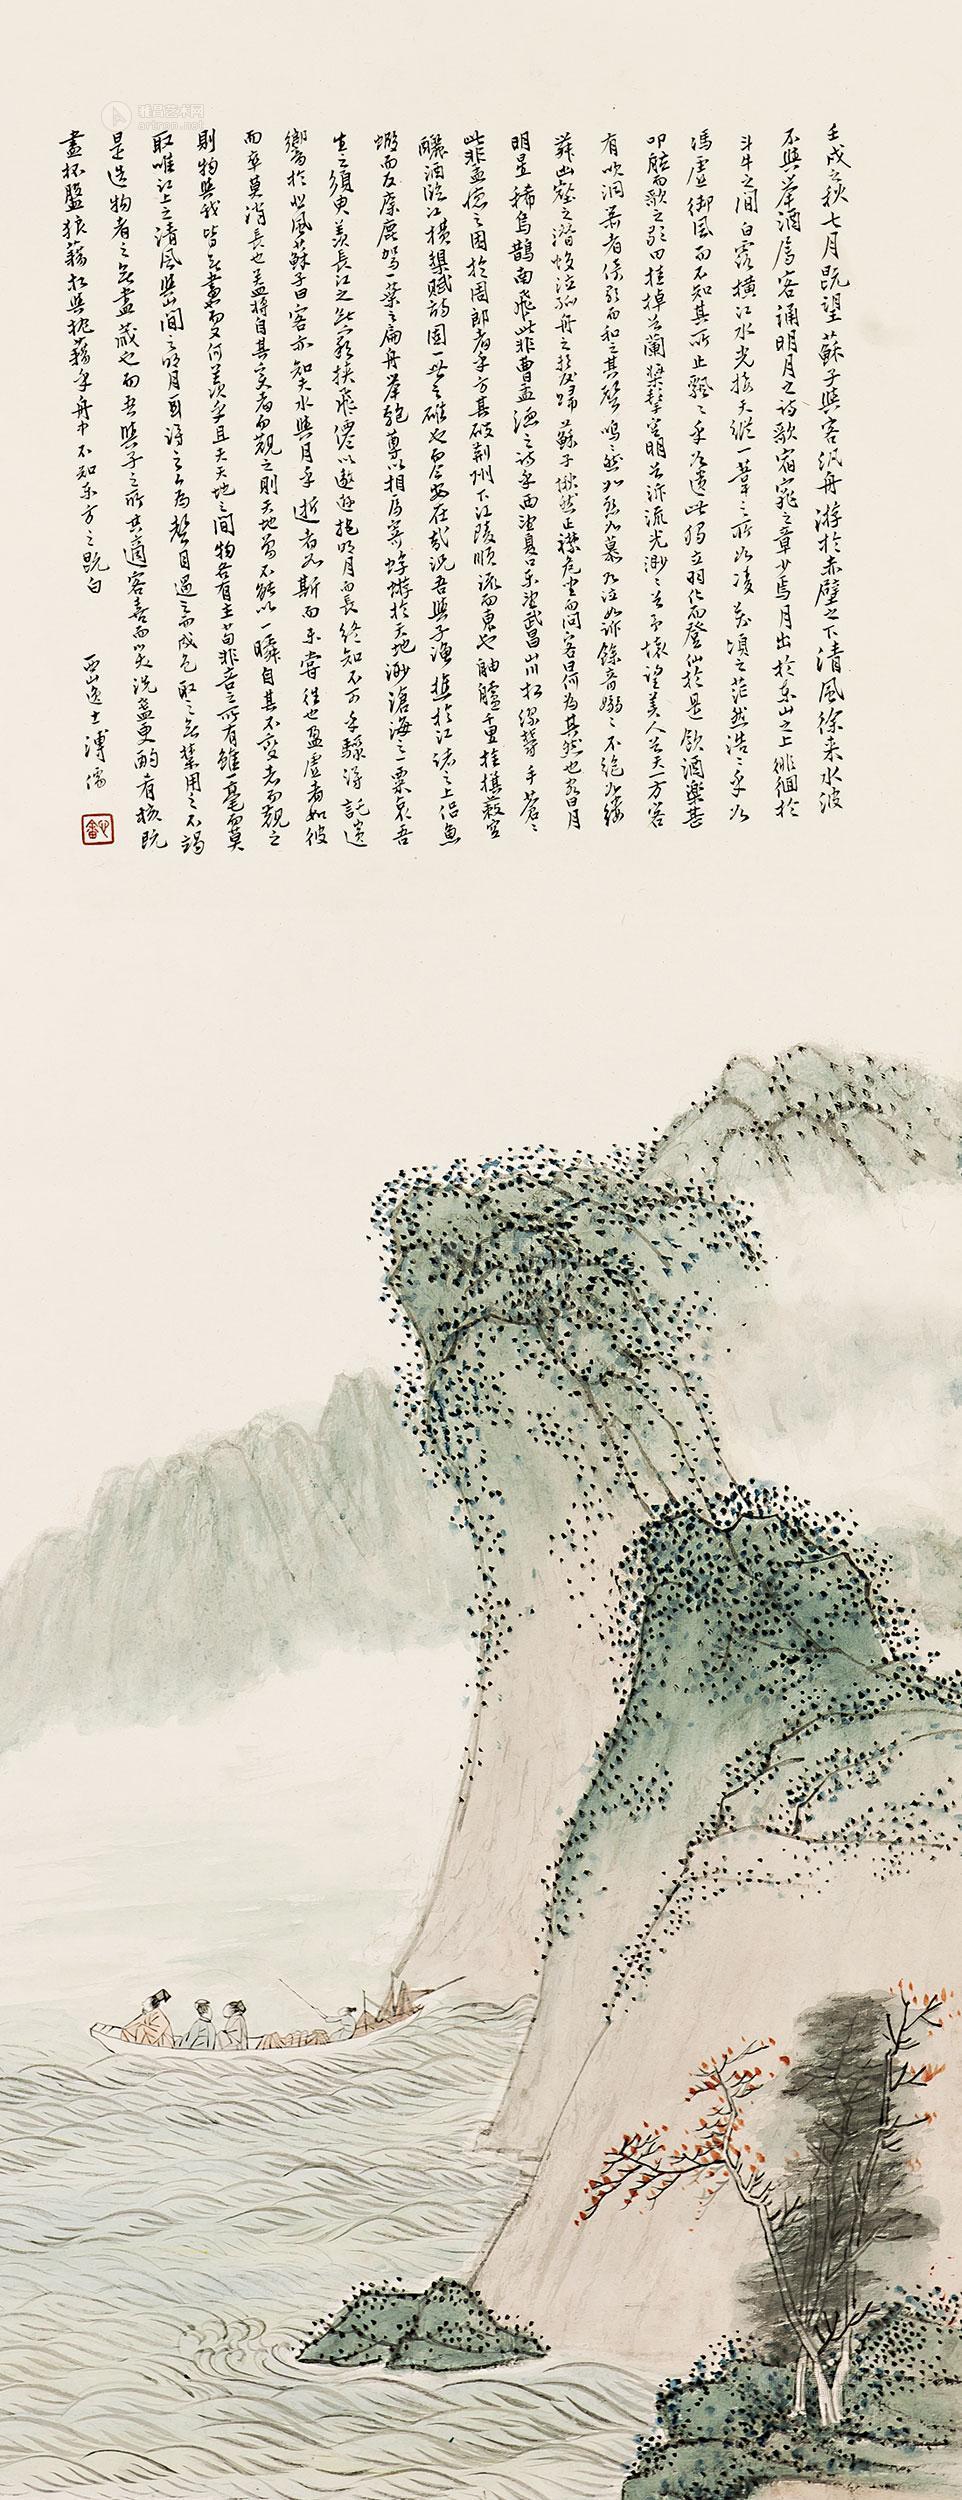 壬戌之秋七月既望蘇子與客汎舟游於赤壁之下清風徐來水波
不興舉酒屬客誦明月之詩歌窈窕之章少焉月出於東山之上徘徊於
斗牛之間白露橫江水光接天縱一葦之所如凌萬頃之茫然浩浩乎如
馮虛御風而不知其所止飄飄乎如遺世獨立羽化而登仙於是飲酒樂甚
叩舷而歌之歌曰桂棹兮蘭槳擊空明兮泝流光渺渺兮予懷望美人兮天一方客
有吹洞簫者倚歌而和之其聲嗚嗚然如怨如慕如泣如訴餘音嫋嫋不絕如縷
舞幽壑之潛蛟泣孤舟之嫠婦蘇子愀然正襟危坐而問客曰何為其然也客曰月
明星稀烏鵲南飛此非曹孟德之詩乎西望夏口東望武昌山川相繆鬱乎蒼蒼
此非孟德之困於周郎者乎方其破荊州下江陵順流而東也舳艫千里旌旗蔽空
釃酒臨江橫槊賦詩固一世之雄也而今安在哉況吾與子漁樵於江渚之上侶魚
蝦而友麋鹿駕一葉之扁舟舉匏尊以相屬寄蜉蝣於天地渺滄海之一粟哀吾
生之須臾羨長江之無窮挾飛僊以遨遊抱明月而長終知不可乎驟得託遺
響於悲風蘇子曰客亦知夫水與月乎逝者如斯而未嘗往也盈虛者如彼
而卒莫消長也蓋將自其變者而觀之則天地曾不能以一瞬自其不變者而觀之
則物與我皆無盡也而又何羨乎且夫天地之間物各有主苟非吾之所有雖一毫而莫
取唯江上之清風與山間之明月耳得之為聲目遇之而成色取之無禁用之不竭
是造物者之無盡藏也而吾與子之所共適客喜而笑洗盞更酌肴核既
盡杯盤狼藉相與枕藉乎舟中不知東方之既白 西山逸士溥儒
心畬
雅昌艺术网
artron.net